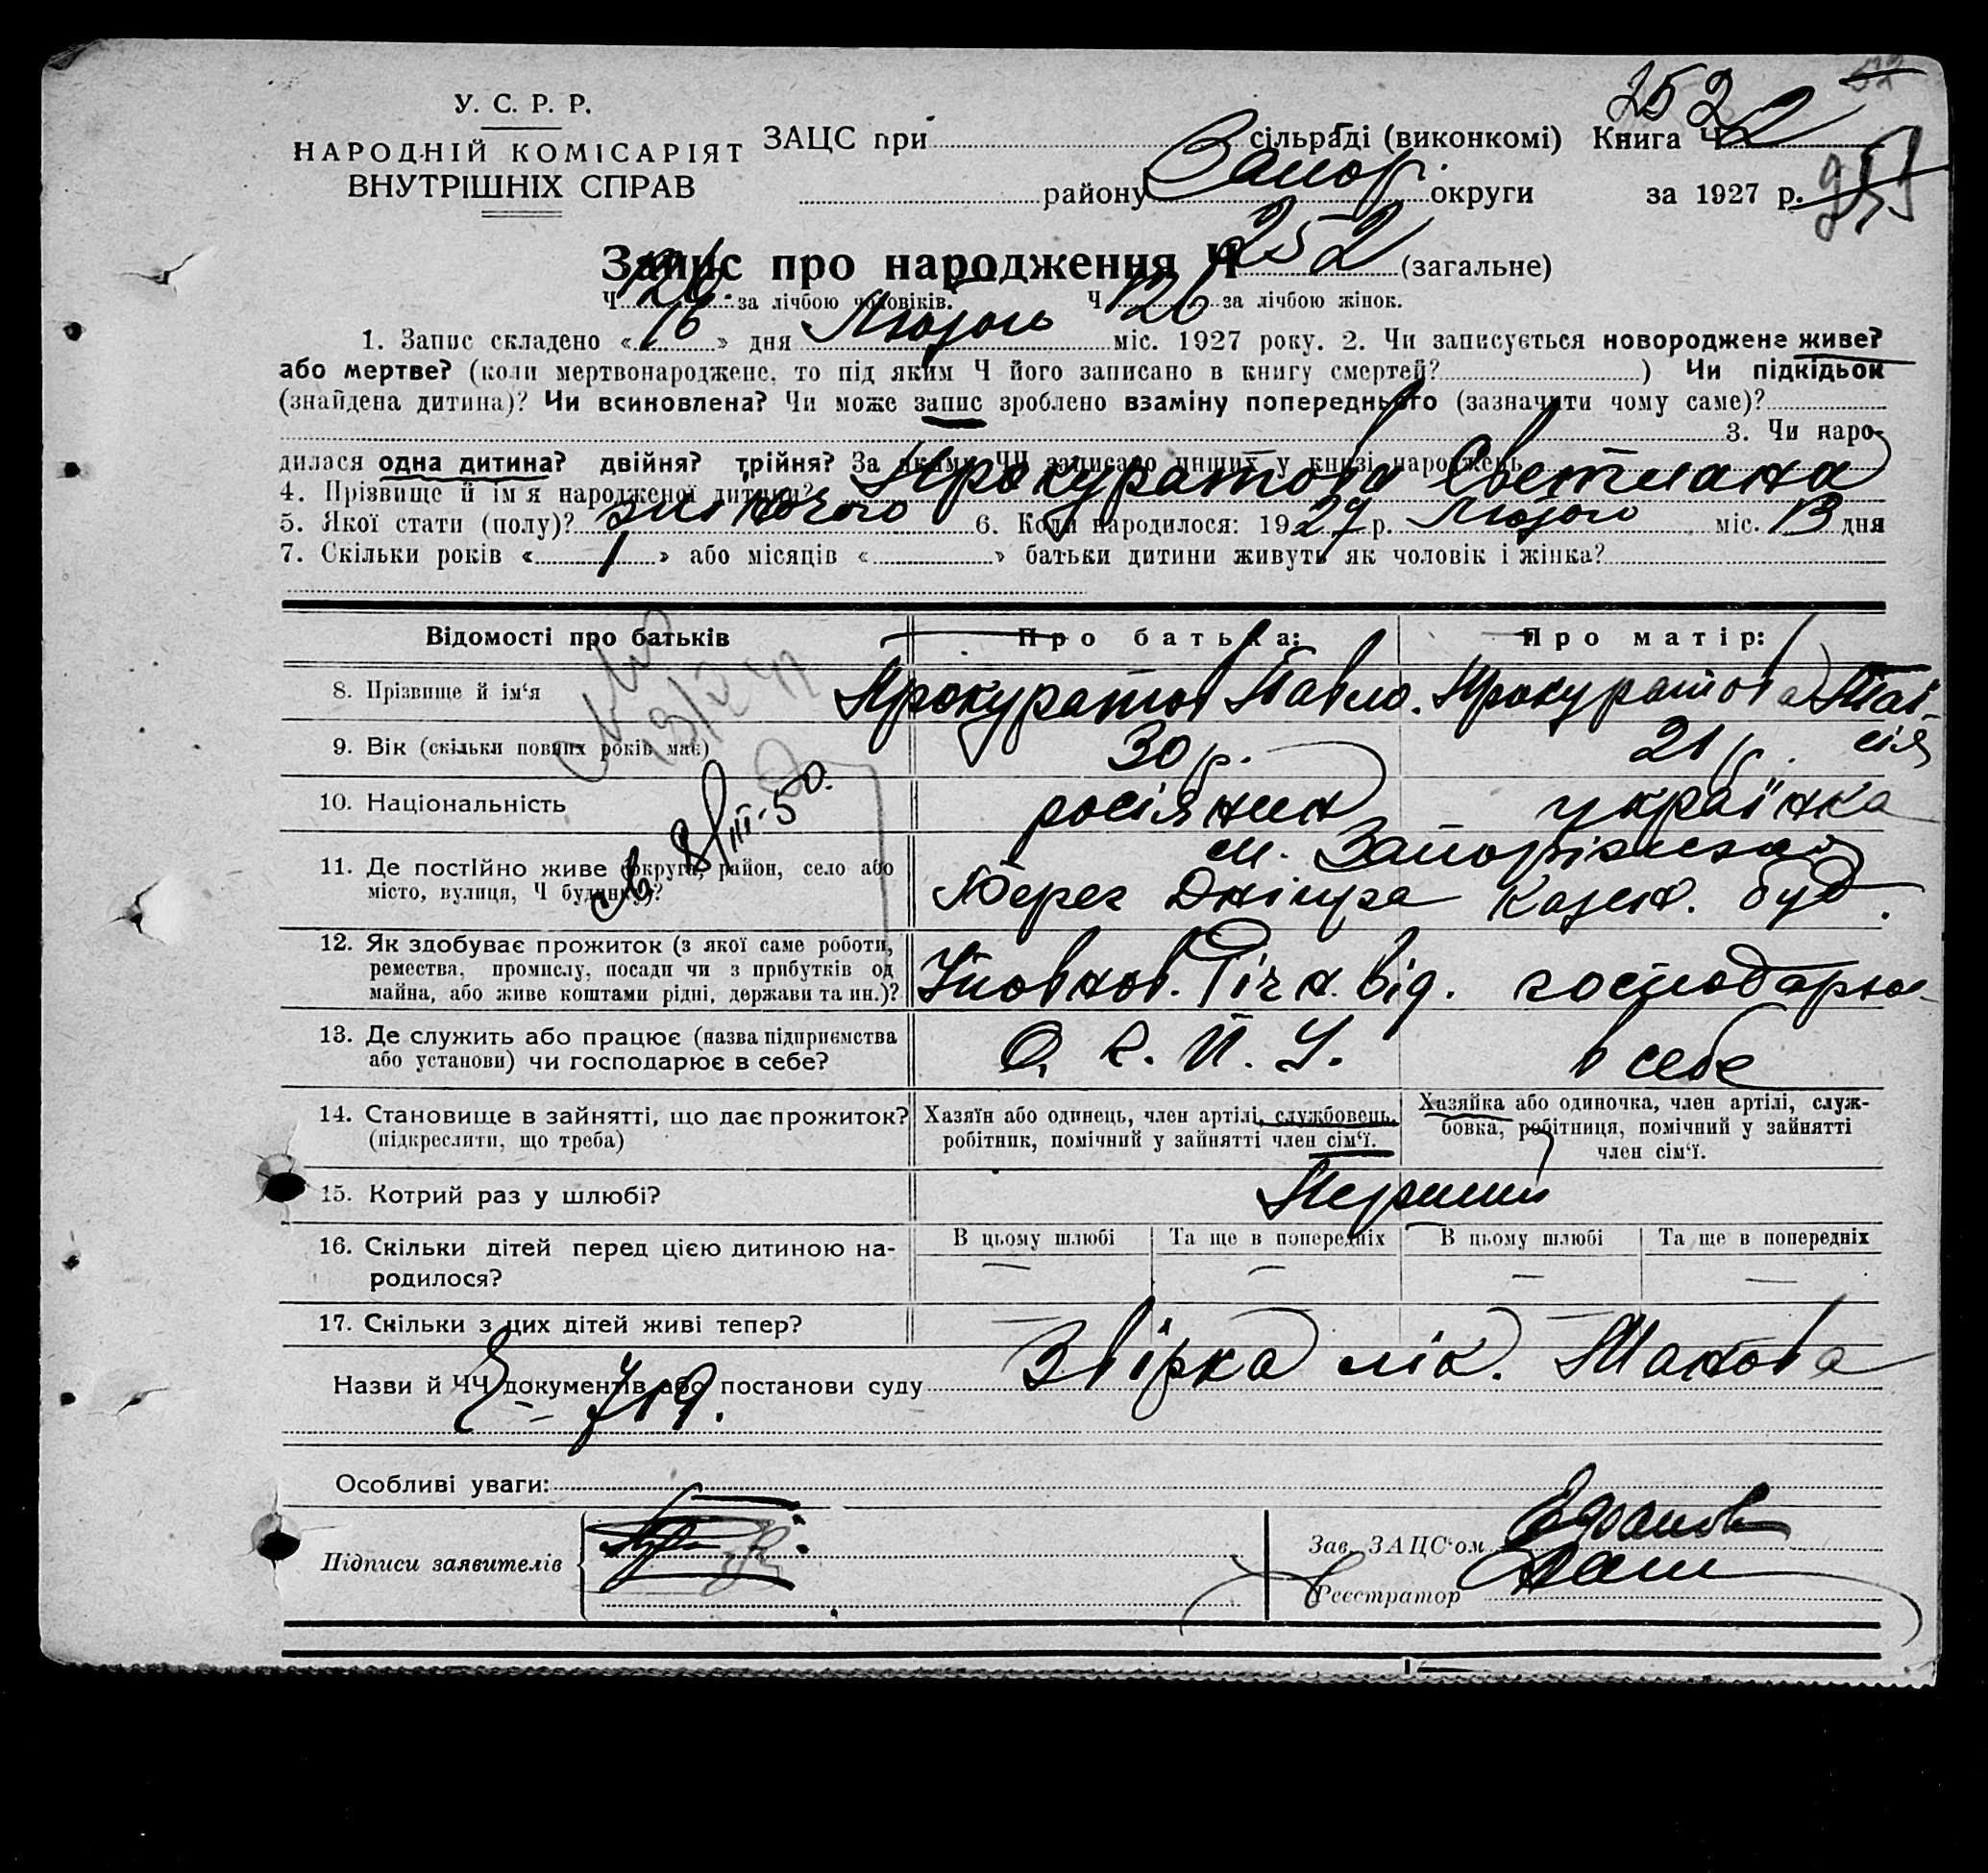 252
У. С. Р. Р.
НАРОДНІЙ КОМІСАРІЯТ
ВНУТРІШНІХ СПРАВ
ЗАЦС при сільраді (виконкомі) Книга Ч 2
району Запор. округи за 1927 р.
Запис про народження Ч 252 (загальне)
Ч 126 за лічбою чоловіків. Ч 126 за лічбою жінок.
1. Запис складено « 16 » дня Лютого міс. 1927 року. 2. Чи записується новороджене живе?
або мертве? (коли мертвонароджене, то під яким Ч його записано в книгу смертей? ) Чи підкідьок
(знайдена дитина)? Чи всиновлена? Чи може запис зроблено взаміну попереднього (зазначити чому саме)?
3. Чи наро-
дилася одна дитина? двійня? трійня? За якими ЧЧ записано инших у книзі народжень
4. Прізвище й ім'я народженої дитини? Прокуратова Светлана
5. Якої стати (полу)? жіночого 6. Коли народилося: 1927 р. Лютого міс. 13 дня
7. Скільки років « 1 » або місяців « » батьки дитини живуть як чоловік і жінка?
Відомості про батьків Про батька: Про матір:
8. Прізвище й ім'я Прокуратов Павло. Прокуратова Таі-
сія
9. Вік (скільки повних років має) 30 р. 21 р.
10. Національність росіянин українка
11. Де постійно живе (округа, район, село або
місто, вулиця, Ч будинку)?
м. Запоріжжя
Берег Дніпра Казен. буд.
12. Як здобуває прожиток (з якої саме роботи,
ремества, промислу, посади чи з прибутків од
майна, або живе коштами рідні, держави та ин.)?
Уповнов. Річн. від. господарює
13. Де служить або працює (назва підприємства
або установи) чи господарює в себе?
в себе
14. Становище в зайнятті, що дає прожиток?
(підкреслити, що треба)
Хазяїн або одинець, член артілі, службовець,
робітник, помічний у зайнятті член сім'ї.
Хазяйка або одиночка, член артілі, служ-
бовка, робітниця, помічний у зайнятті
член сім'ї.
15. Котрий раз у шлюбі? Перший
16. Скільки дітей перед цією дитиною на-
родилося?
В цьому шлюбі Та ще в попередніх В цьому шлюбі Та ще в попередніх
— — — —
17. Скільки з цих дітей живі тепер? —
Назви й ЧЧ документів або постанови суду Звірка лік.
719.
Особливі уваги:
Підписи заявителів
Зав. ЗАЦС'ом
Реєстратор